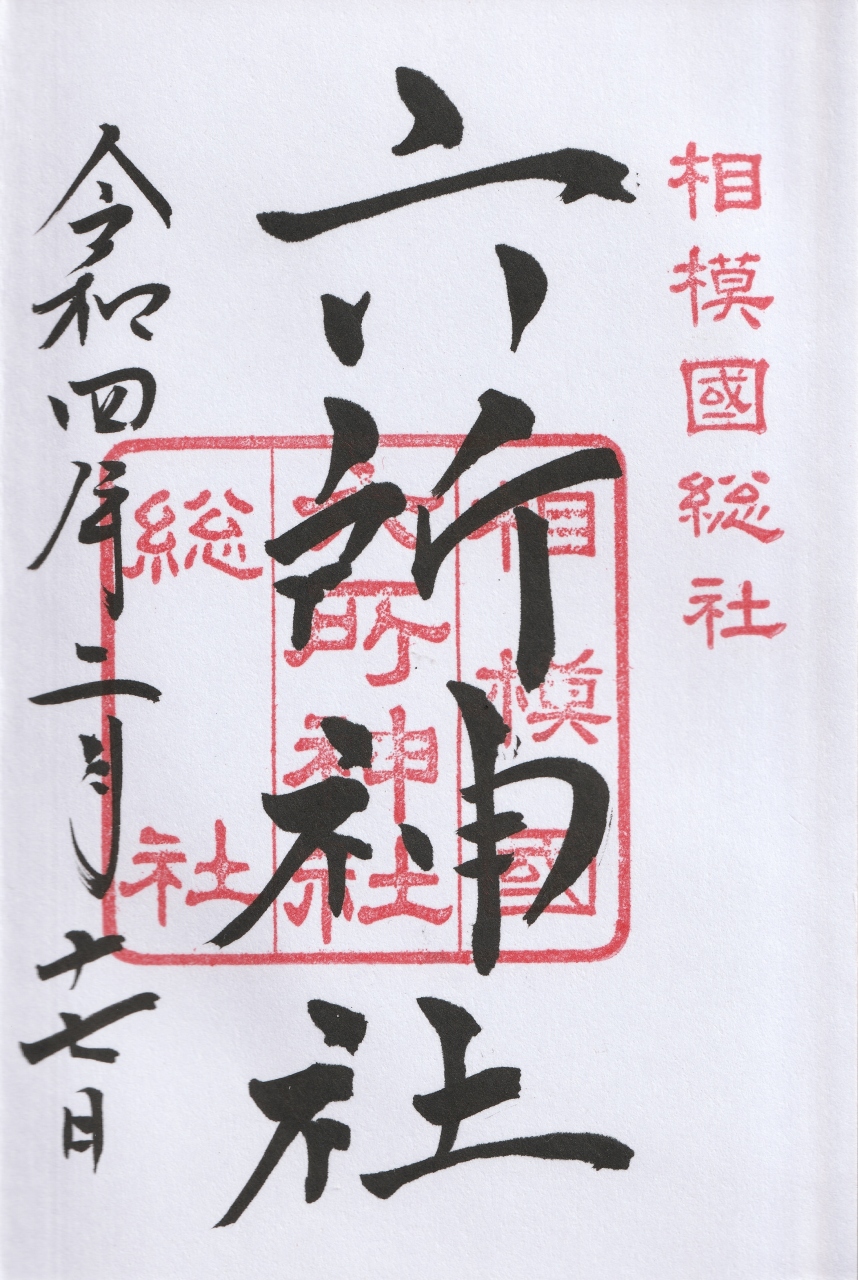 相模國総社
六所神社
相模國
六所神社
総社
令和四年二月十七日